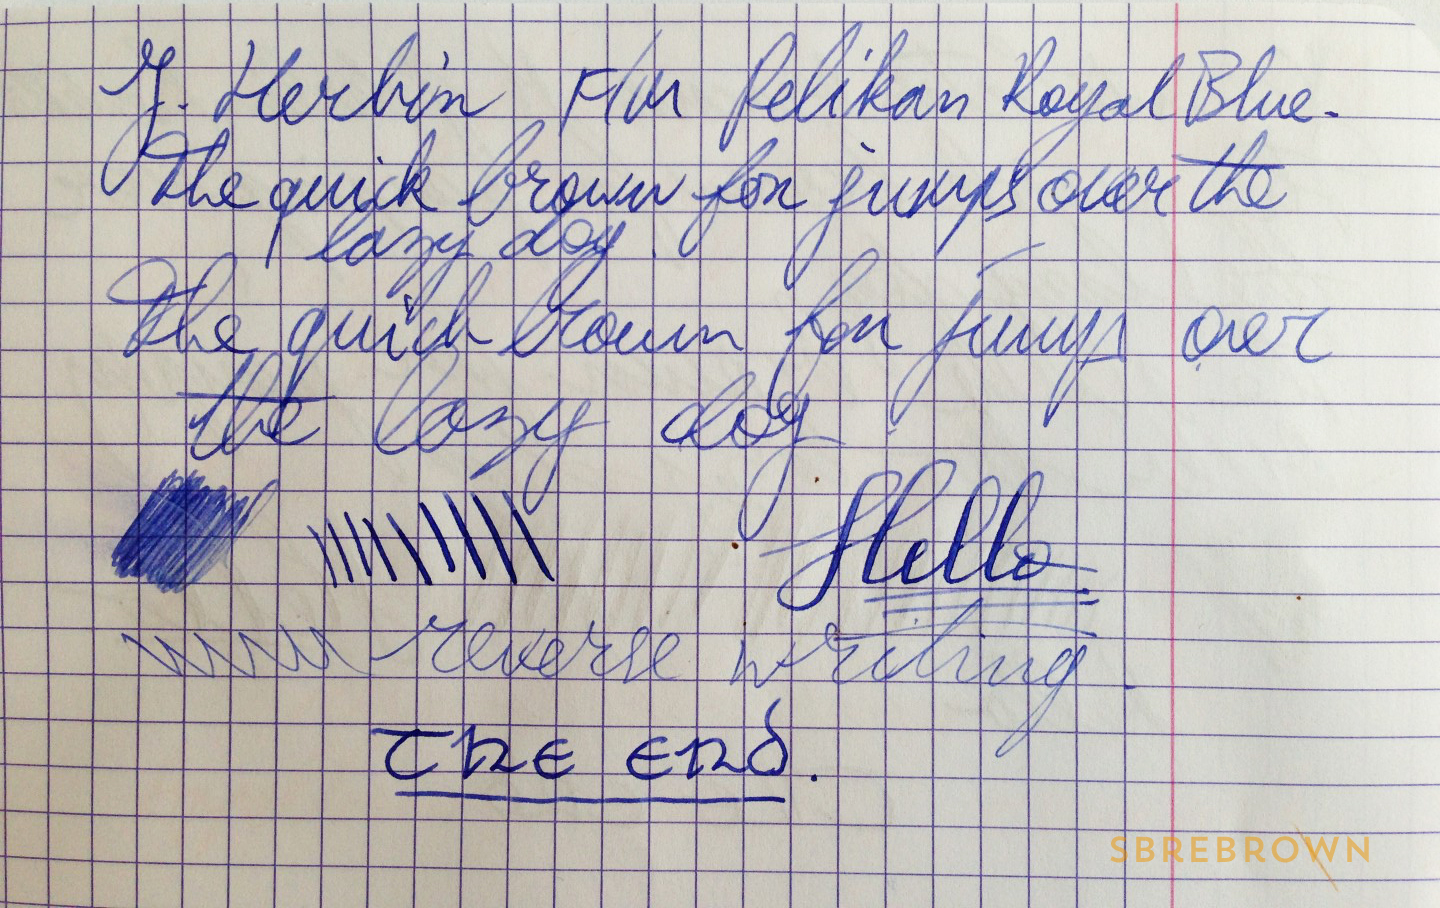 J. Herbin F/M Pelikan Royal Blue.
The quick brown fox jumps over the
lazy dog.
The quick brown fox jumps over
the lazy dog
Hello
reverse writing.
The End.
SBREBROWN